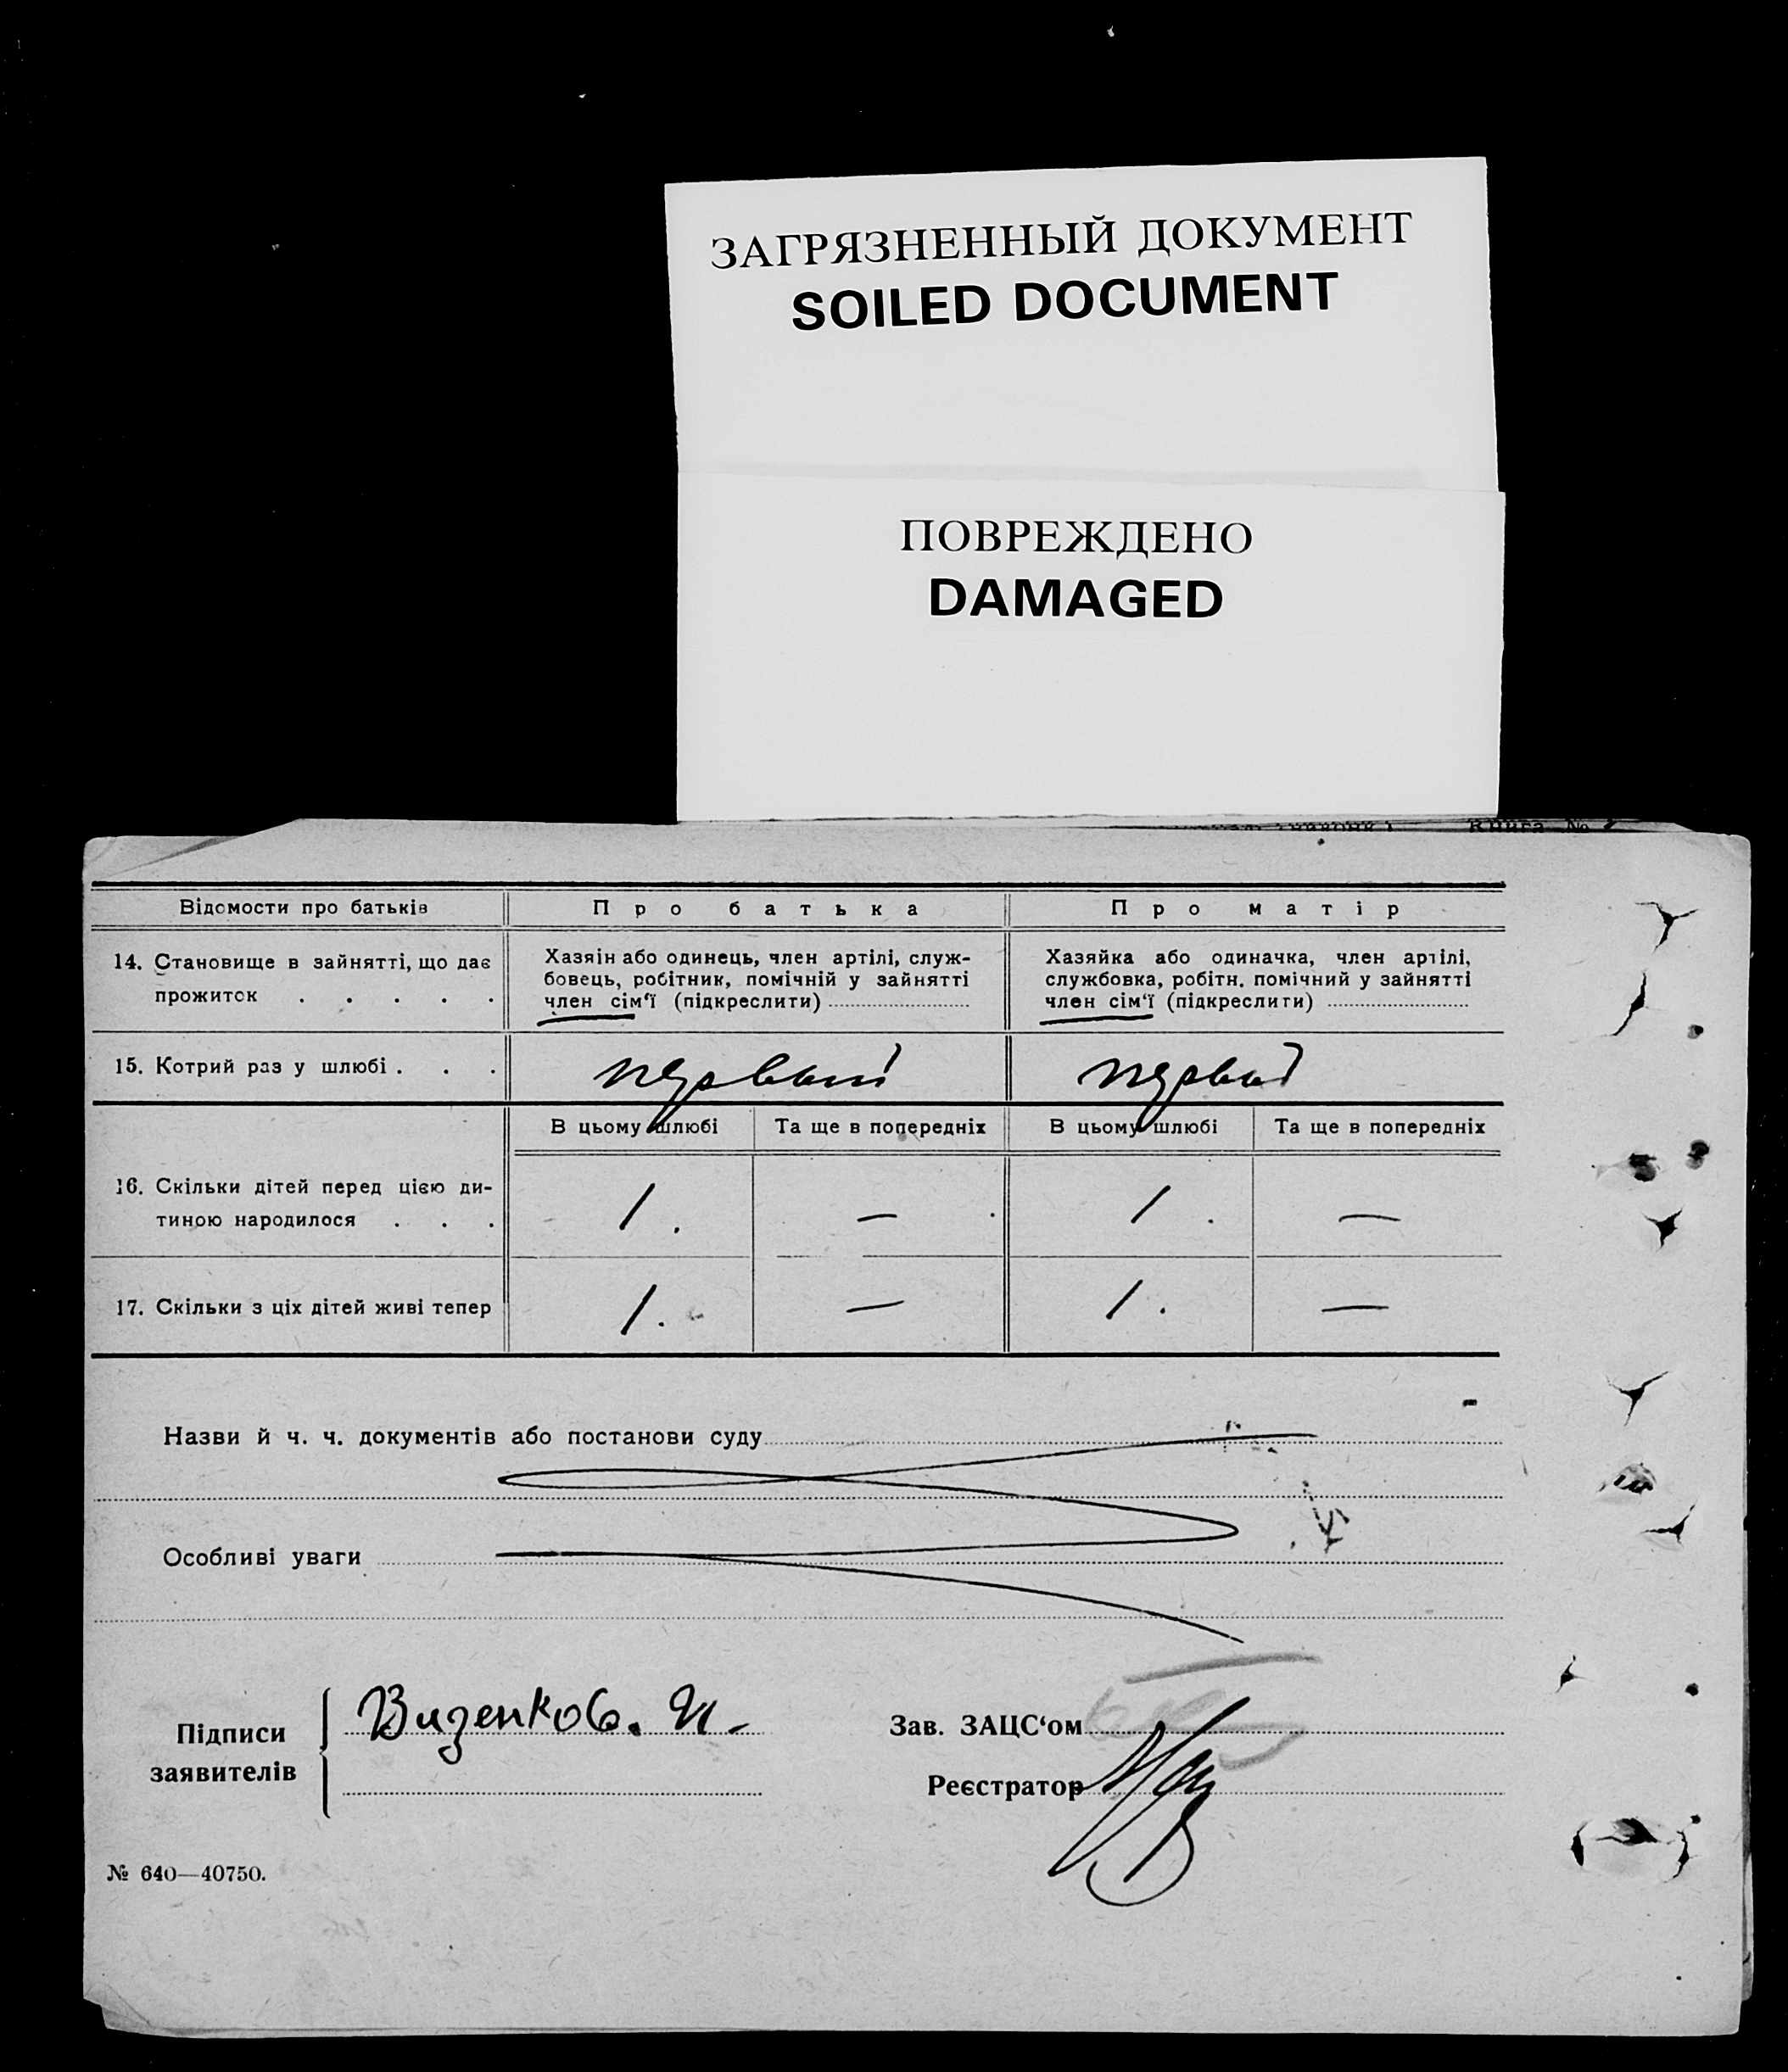 ЗАГРЯЗНЕННЫЙ ДОКУМЕНТ
SOILED DOCUMENT
ПОВРЕЖДЕНО
DAMAGED
Книга №
Відомости про батьків Про батька Про матір
14. Становище в зайнятті, що дає
прожиток . . . . .
Хазяін або одинець, член артілі, служ-
бовець, робітник, помічній у зайнятті
член сім'ї (підкреслити)
Хазяйка або одиначка, член артілі,
службовка, робітн. помічний у зайнятті
член сім'ї (підкреслити)
15. Котрий раз у шлюбі . . . первый первый
В цьому шлюбі Та ще в попередніх В цьому шлюбі Та ще в попередніх
16. Скільки дітей перед цією ди-
тиною народилося . . . 1. — 1. —
17. Скільки з ціх дітей живі тепер 1. — 1. —
Назви й ч. ч. документів або постанови суду
Особливі уваги
Підписи
заявителів
Визенков. И.
Зав. ЗАЦС'ом
Реєстратор
№ 640—40750.